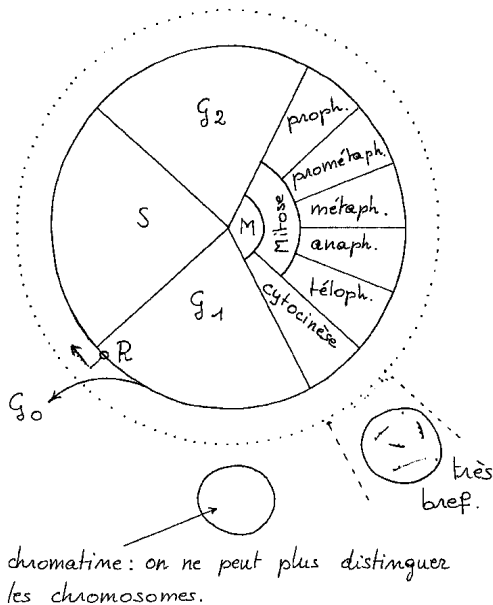 G2
proph.
prométaph.
métaph.
anaph.
téloph.
cytocinèse
Mitose
M
S
G1
R
G0
très
bref.
chromatine : on ne peut plus distinguer
les chromosomes.